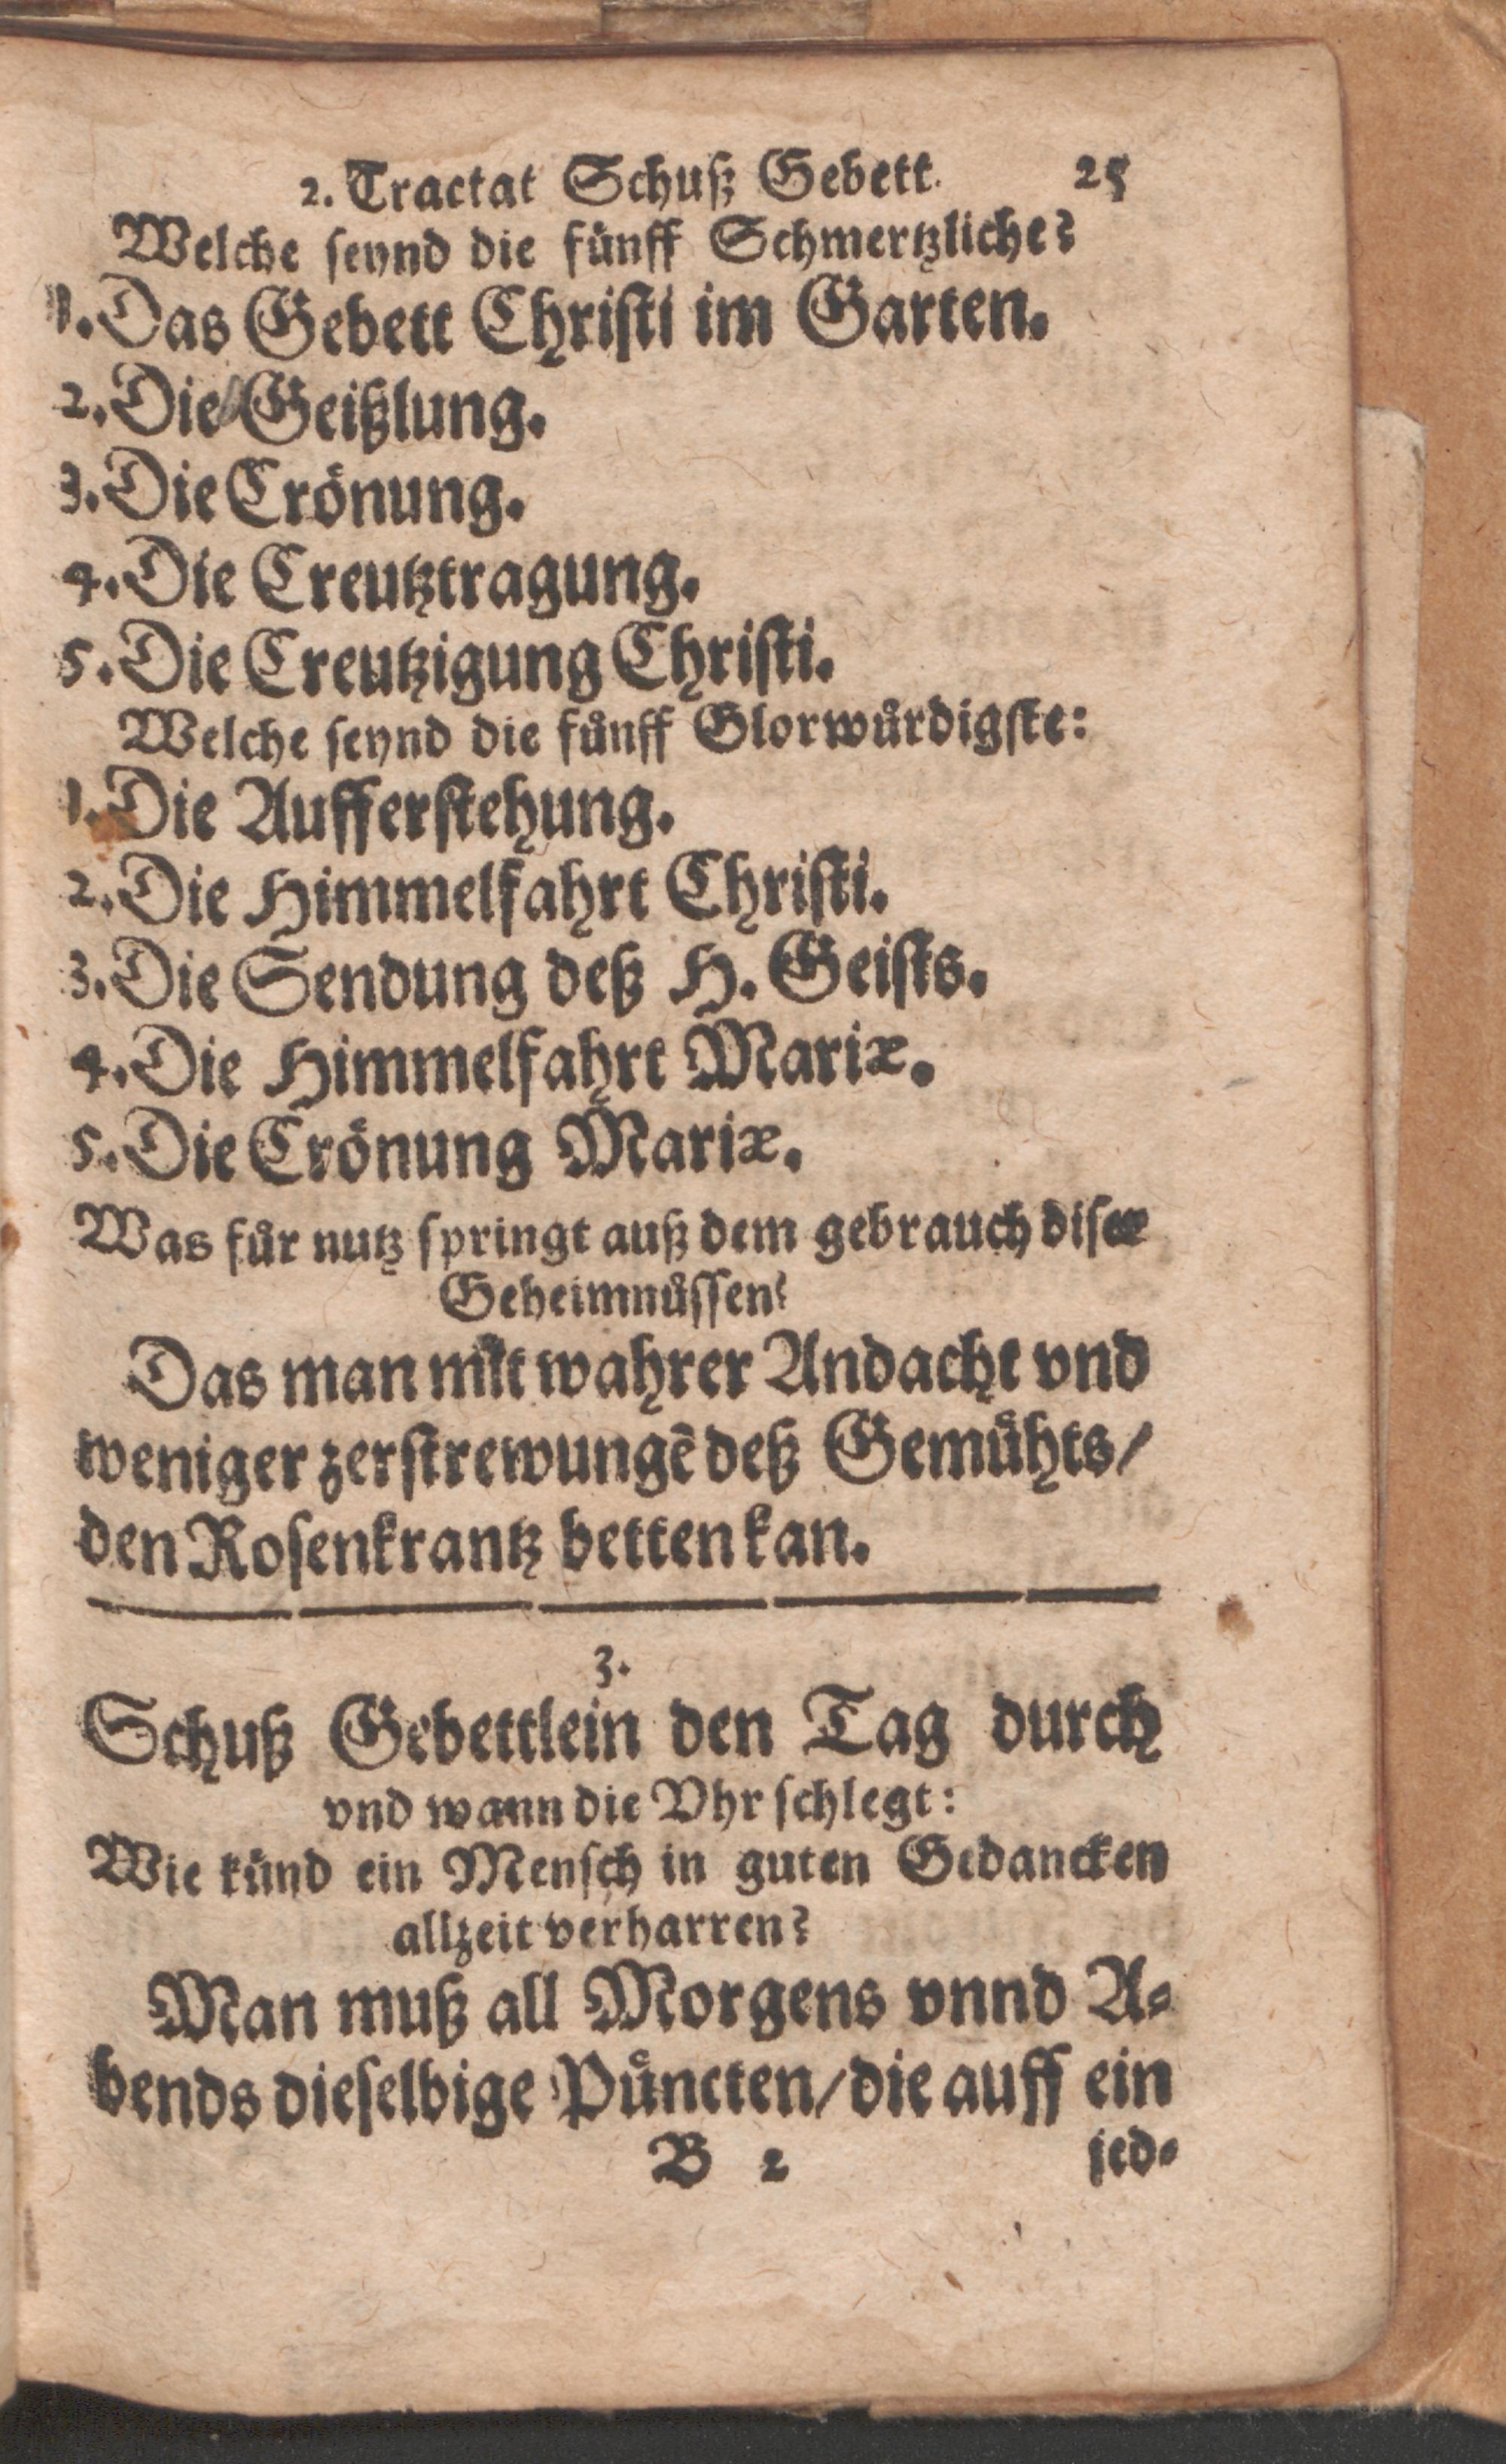 2. Tractat Schuß Gebett. 25
Welche seynd die fůnff Schmertzliche?
1. Das Gebett Christi im Garten.
2. Die Geißlung.
3. Die Crönung.
4. Die Creutztragung.
5. Die Creutzigung Christi.
Welche seynd die fůnff Glorwůrdigste:
1. Die Aufferstehung.
2. Die Himmelfahrt Christi.
3. Die Sendung deß H. Geists.
4. Die Himmelfahrt Mariæ.
5. Die Crönung Mariæ.
Was fůr nutz springt auß dem gebrauch diser
Geheimnůssen?
Das man mit wahrer Andacht vnd
weniger zerstrewungẽ deß Gemůhts/
den Rosenkrantz betten kan.
3.
Schuß Gebettlein den Tag durch
vnd wann die Vhr schlegt:
Wie kůnd ein Mensch in guten Gedancken
allzeit verharren?
Man muß all Morgens vnnd A⸗
bends dieselbige Půncten/die auff ein
B 2 jed⸗